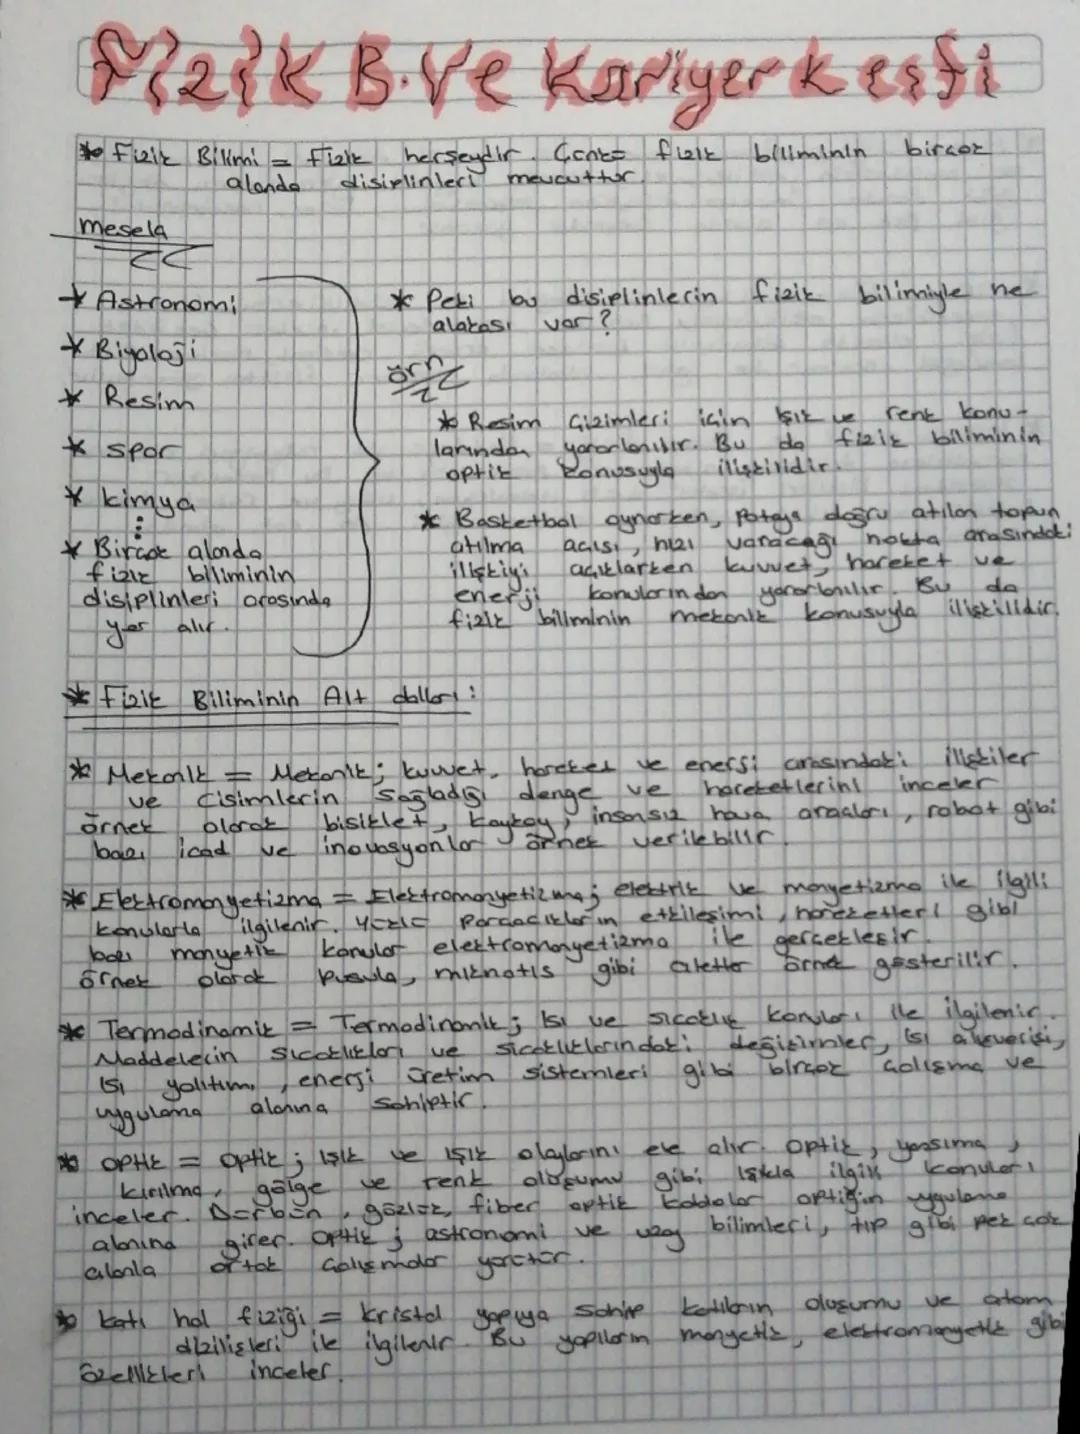 Fizik B. Ve Kariyer keşfi
* Fizik Bilimi = Fizik herşeydir. Çünkü fizik biliminin birçok
alanda disiplinleri mevcuttur.
mesela
* Astronomi
* Biyoloji
* Resim
* spor
* kimya
* Birçok alanda
fizik biliminin
disiplinleri arasında
yer alır.
* Peki bu disiplinlerin fizik bilimiyle ne
alakası var?
örn
* Resim Çizimleri için ışık ve renk konu-
larından yararlanılır. Bu da fizik biliminin
optik konusuyla ilişkilidir.
* Basketbol oynarken, potaya doğru atılan topun
atılma açısı, hızı varacağı nokta arasındaki
ilişkiyi açıklarken kuvvet, hareket ve
enerji konularından yararlanılır. Bu da
fizik biliminin mekanik konusuyla ilişkilidir.
* Fizik Biliminin Alt dalları:
* Mekanik = Mekanik; kuvvet, hareket ve enerji arasındaki ilişkiler
ve cisimlerin sağladığı denge ve hareketlerini inceler
örnek olarak bisiklet, kaykay, insansız hava araçları, robot gibi
bazı icad ve inovasyonlar örnek verilebilir.
* Elektromanyetizma = Elektromanyetizma; elektrik ve manyetizma ile ilgili
konularla ilgilenir. Yüklü parçacıkların etkileşimi, hareketleri gibi
bazı manyetik konular elektromanyetizma ile gerçekleşir.
örnek olarak pusula, mıknatıs gibi aletler örnek gösterilir.
* Termodinamik = Termodinamik; ısı ve sıcaklık konuları ile ilgilenir.
Maddelerin sıcaklıkları ve sıcaklıklarındaki değişimler, ısı alışverişi,
ısı yalıtımı, enerji üretim sistemleri gibi birçok çalışma ve
uygulama alanına sahiptir.
* Optik = optik; ışık ve ışık olaylarını ele alır. Optik, yansıma,
kırılma, gölge ve renk oluşumu gibi ışıkla ilgili konuları
inceler. Dürbün, gözlük, fiber optik kablolar optiğin uygulama
alanına girer. Optik; astronomi ve uzay bilimleri, tıp gibi pek çok
alanla ortak çalışmalar yürütür.
* katı hal fiziği = kristal yapıya sahip katıların oluşumu ve atom
dizilişleri ile ilgilenir. Bu yapıların manyetik, elektromanyetik gibi
özellikleri inceler.